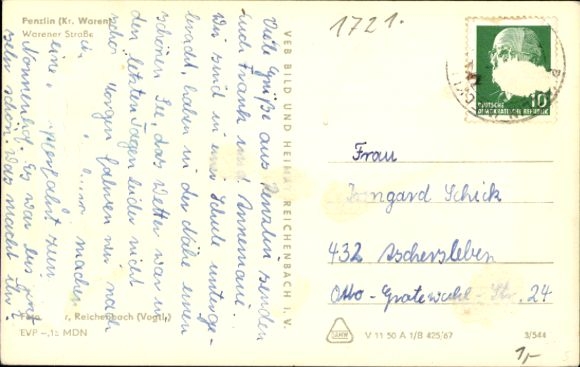 Penzlin (Kr. Waren)
Warener Straße
1721.
Viele Grüße aus Penzlin senden
Euch Frank und Annemarie.
Wir sind in einer Schule unterge-
bracht, haben in der Nähe einen
schönen See, das Wetter war in
den letzten Tagen leider nicht
schön. Morgen fahren wir nach
machen
eine zum
Nonnenhof. Es war bis jetzt
sehr schön. Was macht Ihr.
VEB BILD UND HEIMAT REICHENBACH I. V.
10
DEUTSCHE
DEMOKRATISCHE REPUBLIK
Frau
Irmgard Schick
432 Aschersleben
Otto-Grotewohl-Str. 24
Reichenbach (Vogtl.)
EVP –,15 MDN
V 11 50 A 1/B 425/67
3/544
1,-